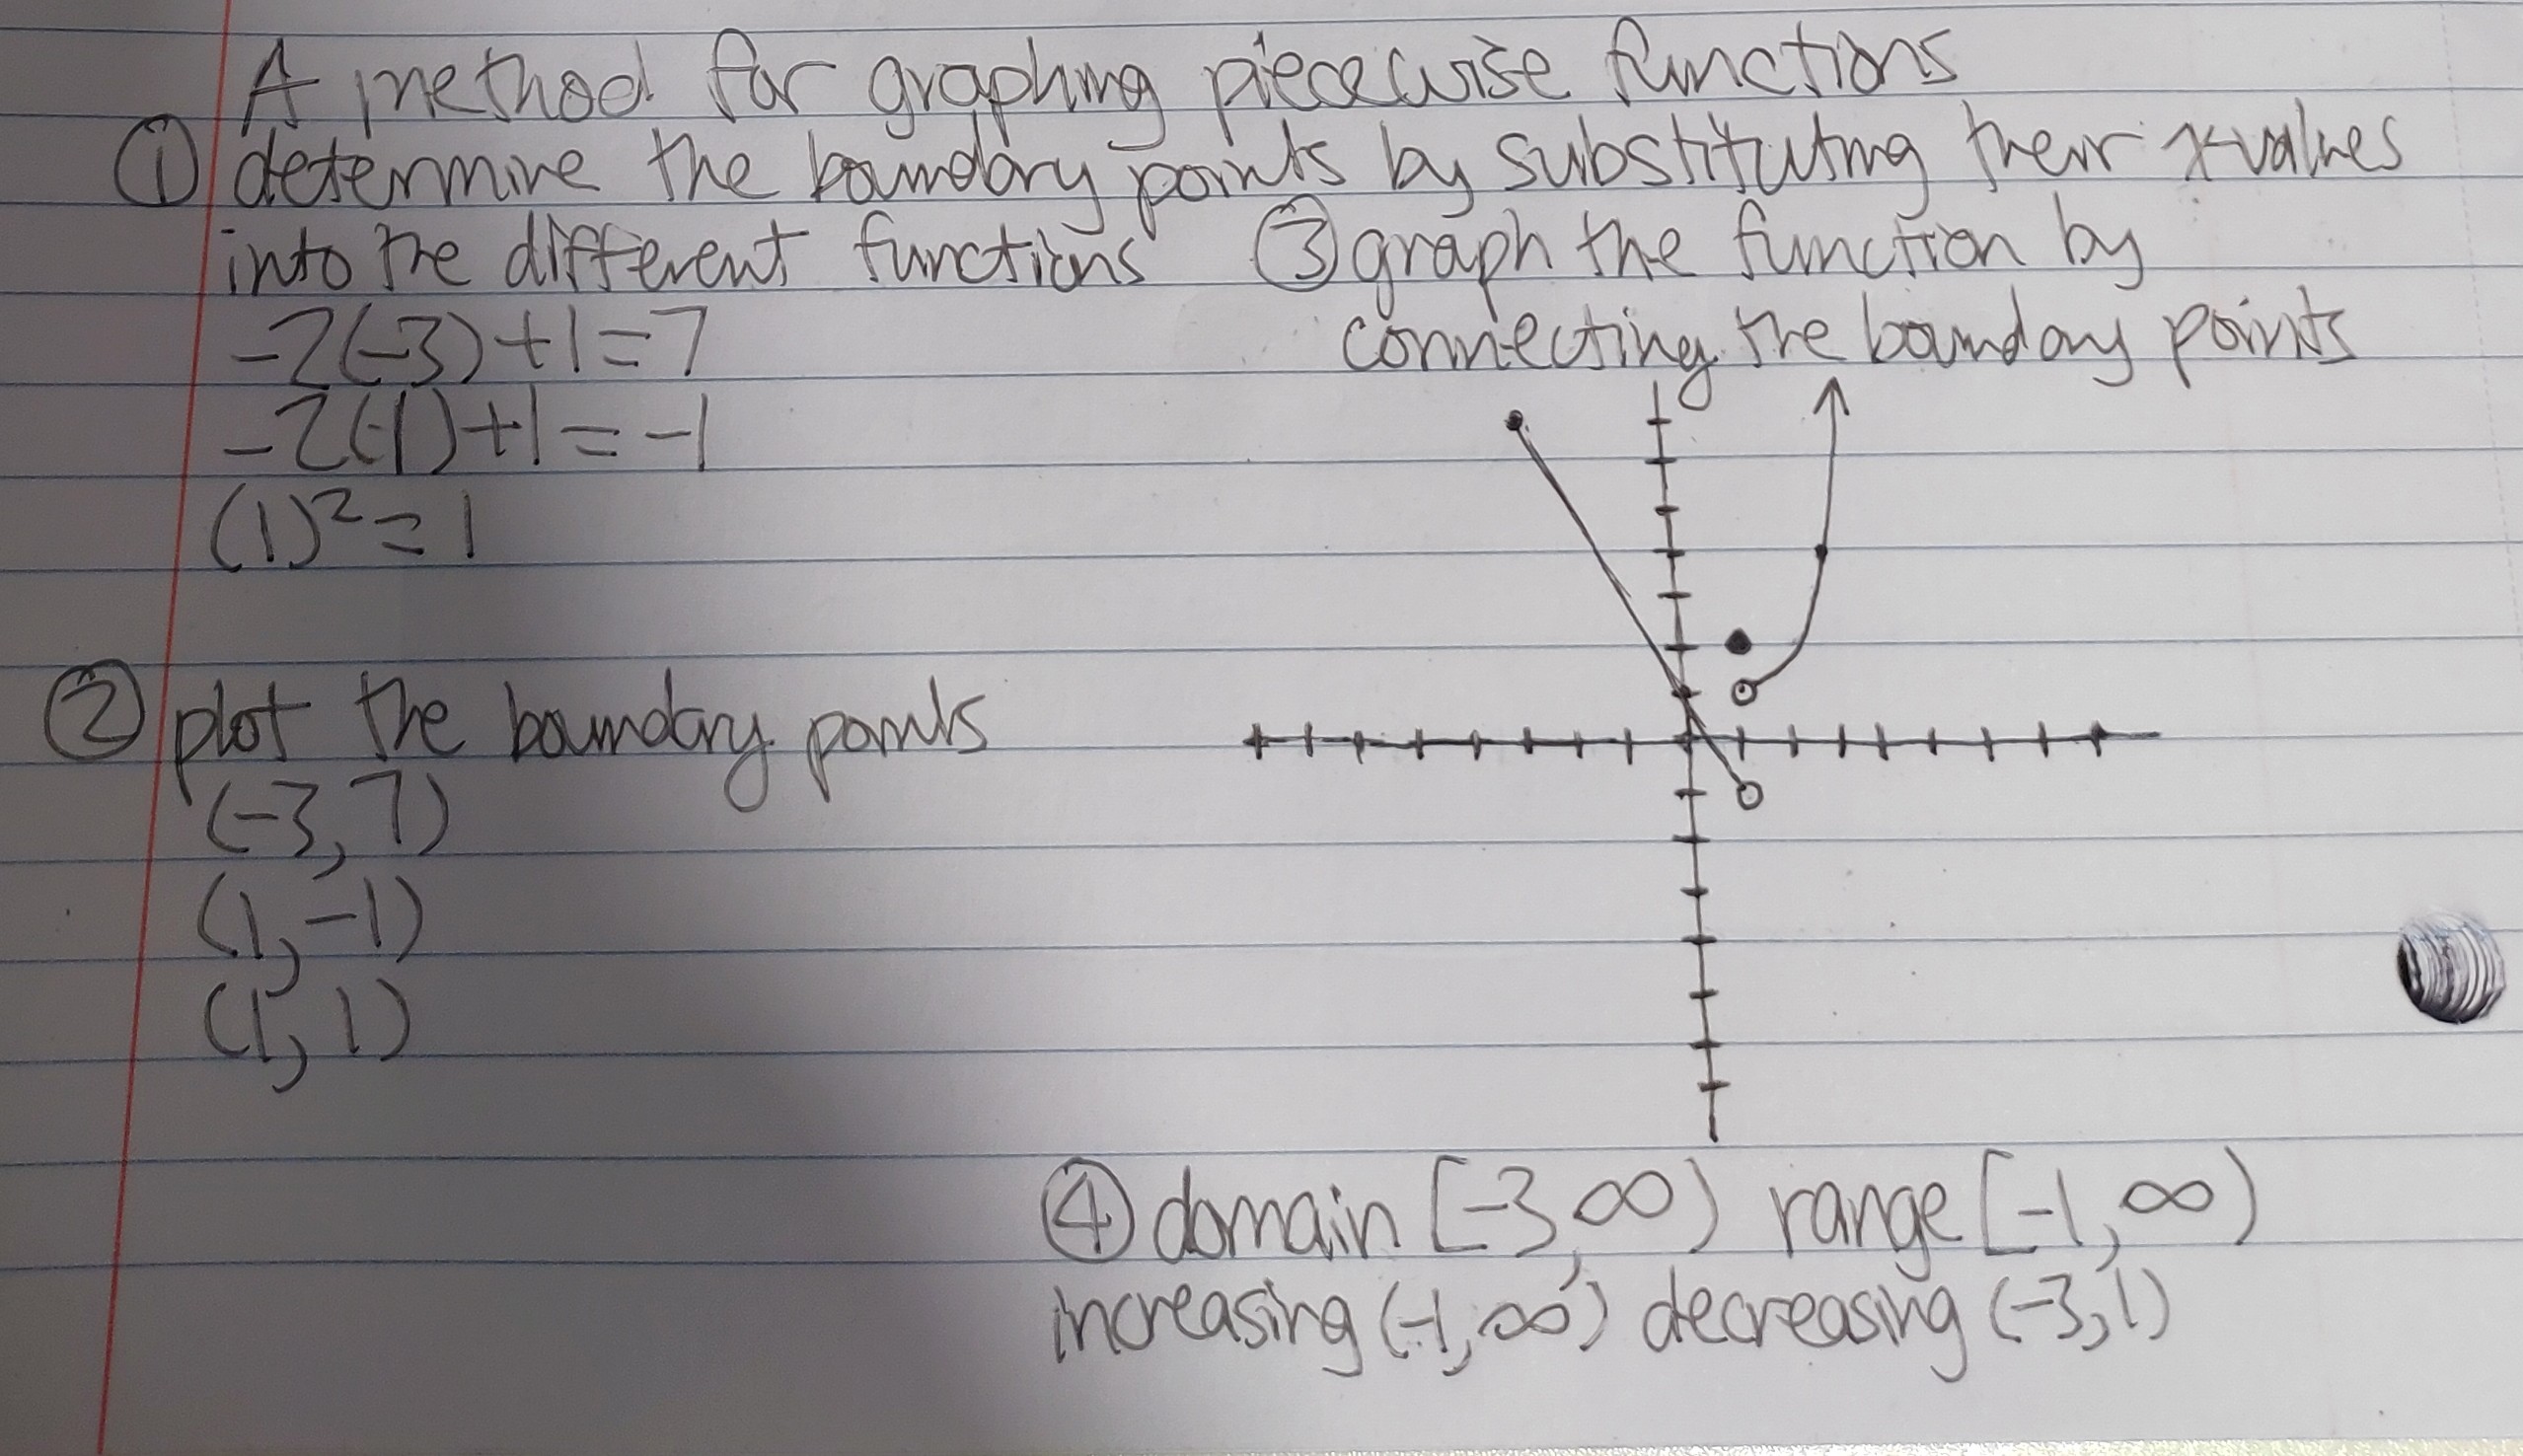 A method for graphing piecewise functions
① determine the boundary points by substituting their x-values
into the different functions
-2(-3)+1=7
-2(-1)+1=-1
(1)²=1
② plot the boundary points
(-3,7)
(1,-1)
(1,1)
③ graph the function by
connecting the boundary points
④ domain [-3,∞) range [-1,∞)
increasing (-1,∞) decreasing (-3,1)